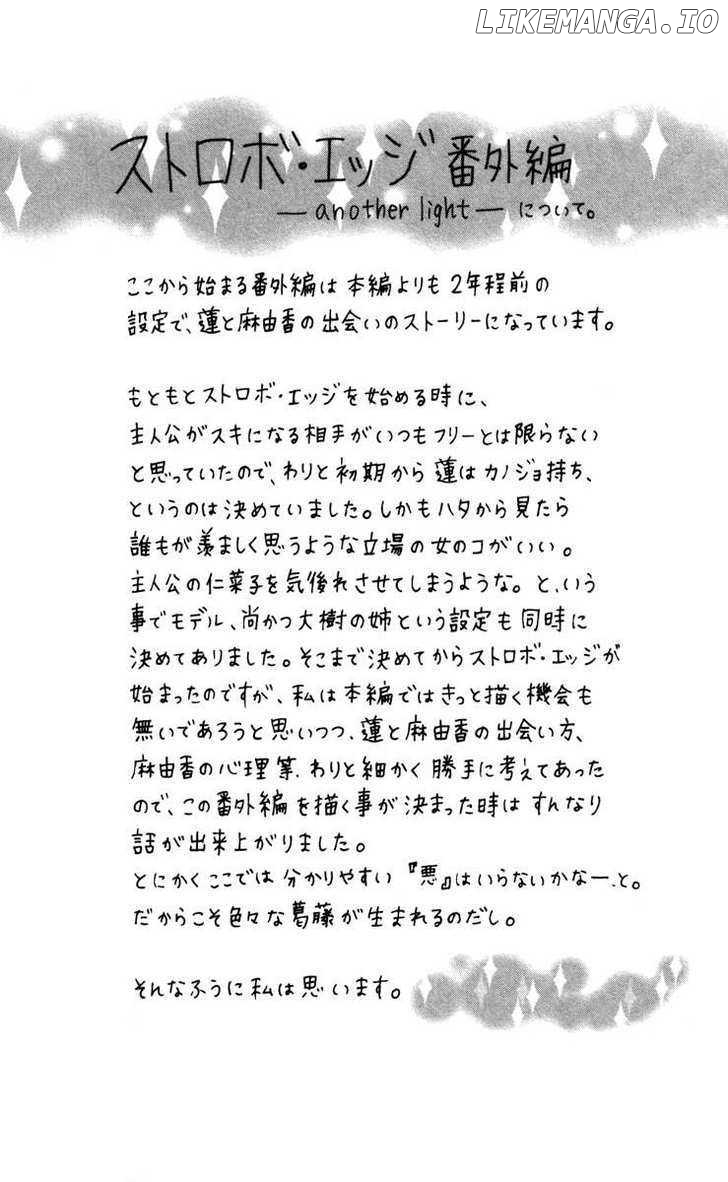 LIKEMANGA.IO
ストロボ・エッジ番外編
―another light― について。
ここから始まる番外編は本編よりも2年程前の
設定で、蓮と麻由香の出会いのストーリーになっています。
もともとストロボ・エッジを始める時に、
主人公がスキになる相手がいつもフリーとは限らない
と思っていたので、わりと初期から蓮はカノジョ持ち、
というのは決めていました。しかもハタから見たら
誰もが羨ましく思うような立場の女のコがいい。
主人公の仁菜子を気後れさせてしまうような。と、いう
事でモデル、尚かつ大樹の姉という設定も同時に
決めてありました。そこまで決めてからストロボ・エッジが
始まったのですが、私は本編ではきっと描く機会も
無いであろうと思いつつ、蓮と麻由香の出会い方、
麻由香の心理等、わりと細かく勝手に考えてあった
ので、この番外編を描く事が決まった時はすんなり
話が出来上がりました。
とにかくここでは分かりやすい『悪』はいらないかなー、と。
だからこそ色々な葛藤が生まれるのだし。
そんなふうに私は思います。